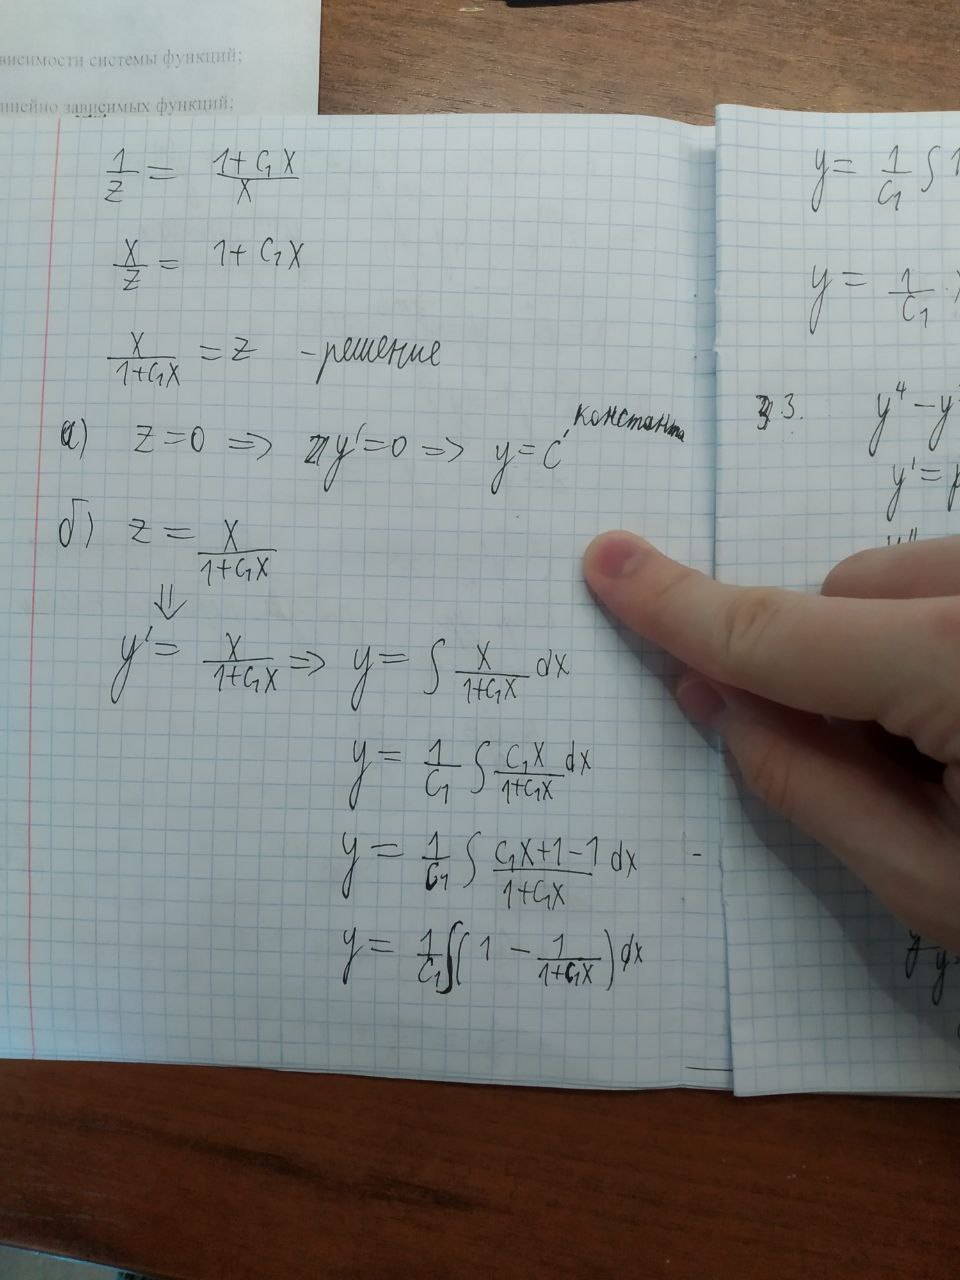 висимости системы функций;
инейно зависимых функций;
1/z = (1+C₁X)/X
X/z = 1+C₁X
X/(1+C₁X) = z - решение
а) z=0 => y'=0 => y=C' константа
б) z = X/(1+C₁X)
⇓
y' = X/(1+C₁X) => y = ∫ X/(1+C₁X) dx
y = 1/C₁ ∫ C₁X/(1+C₁X) dx
y = 1/C₁ ∫ (C₁X+1-1)/(1+C₁X) dx -
y = 1/C₁ ∫(1 - 1/(1+C₁X)) dx
y = 1/C₁ ∫ 1
y = 1/C₁ ·
3. y⁴ - y
y' = p